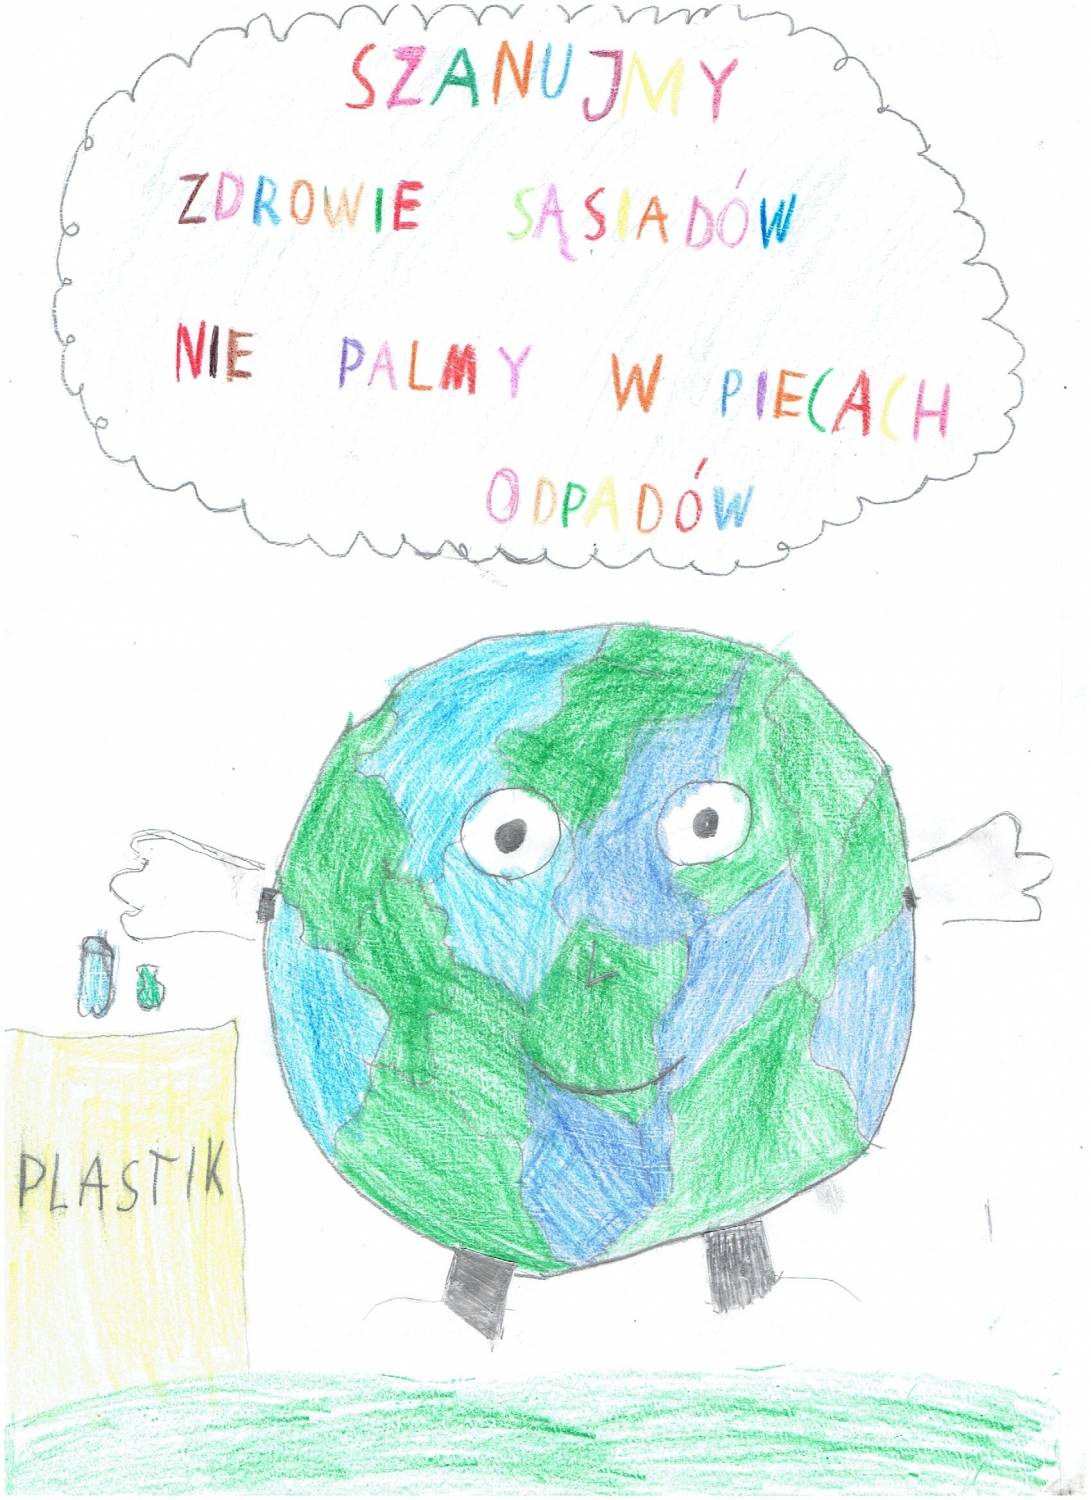 SZANUJMY
ZDROWIE SĄSIADÓW
NIE PALMY W PIECACH
ODPADÓW
PLASTIK